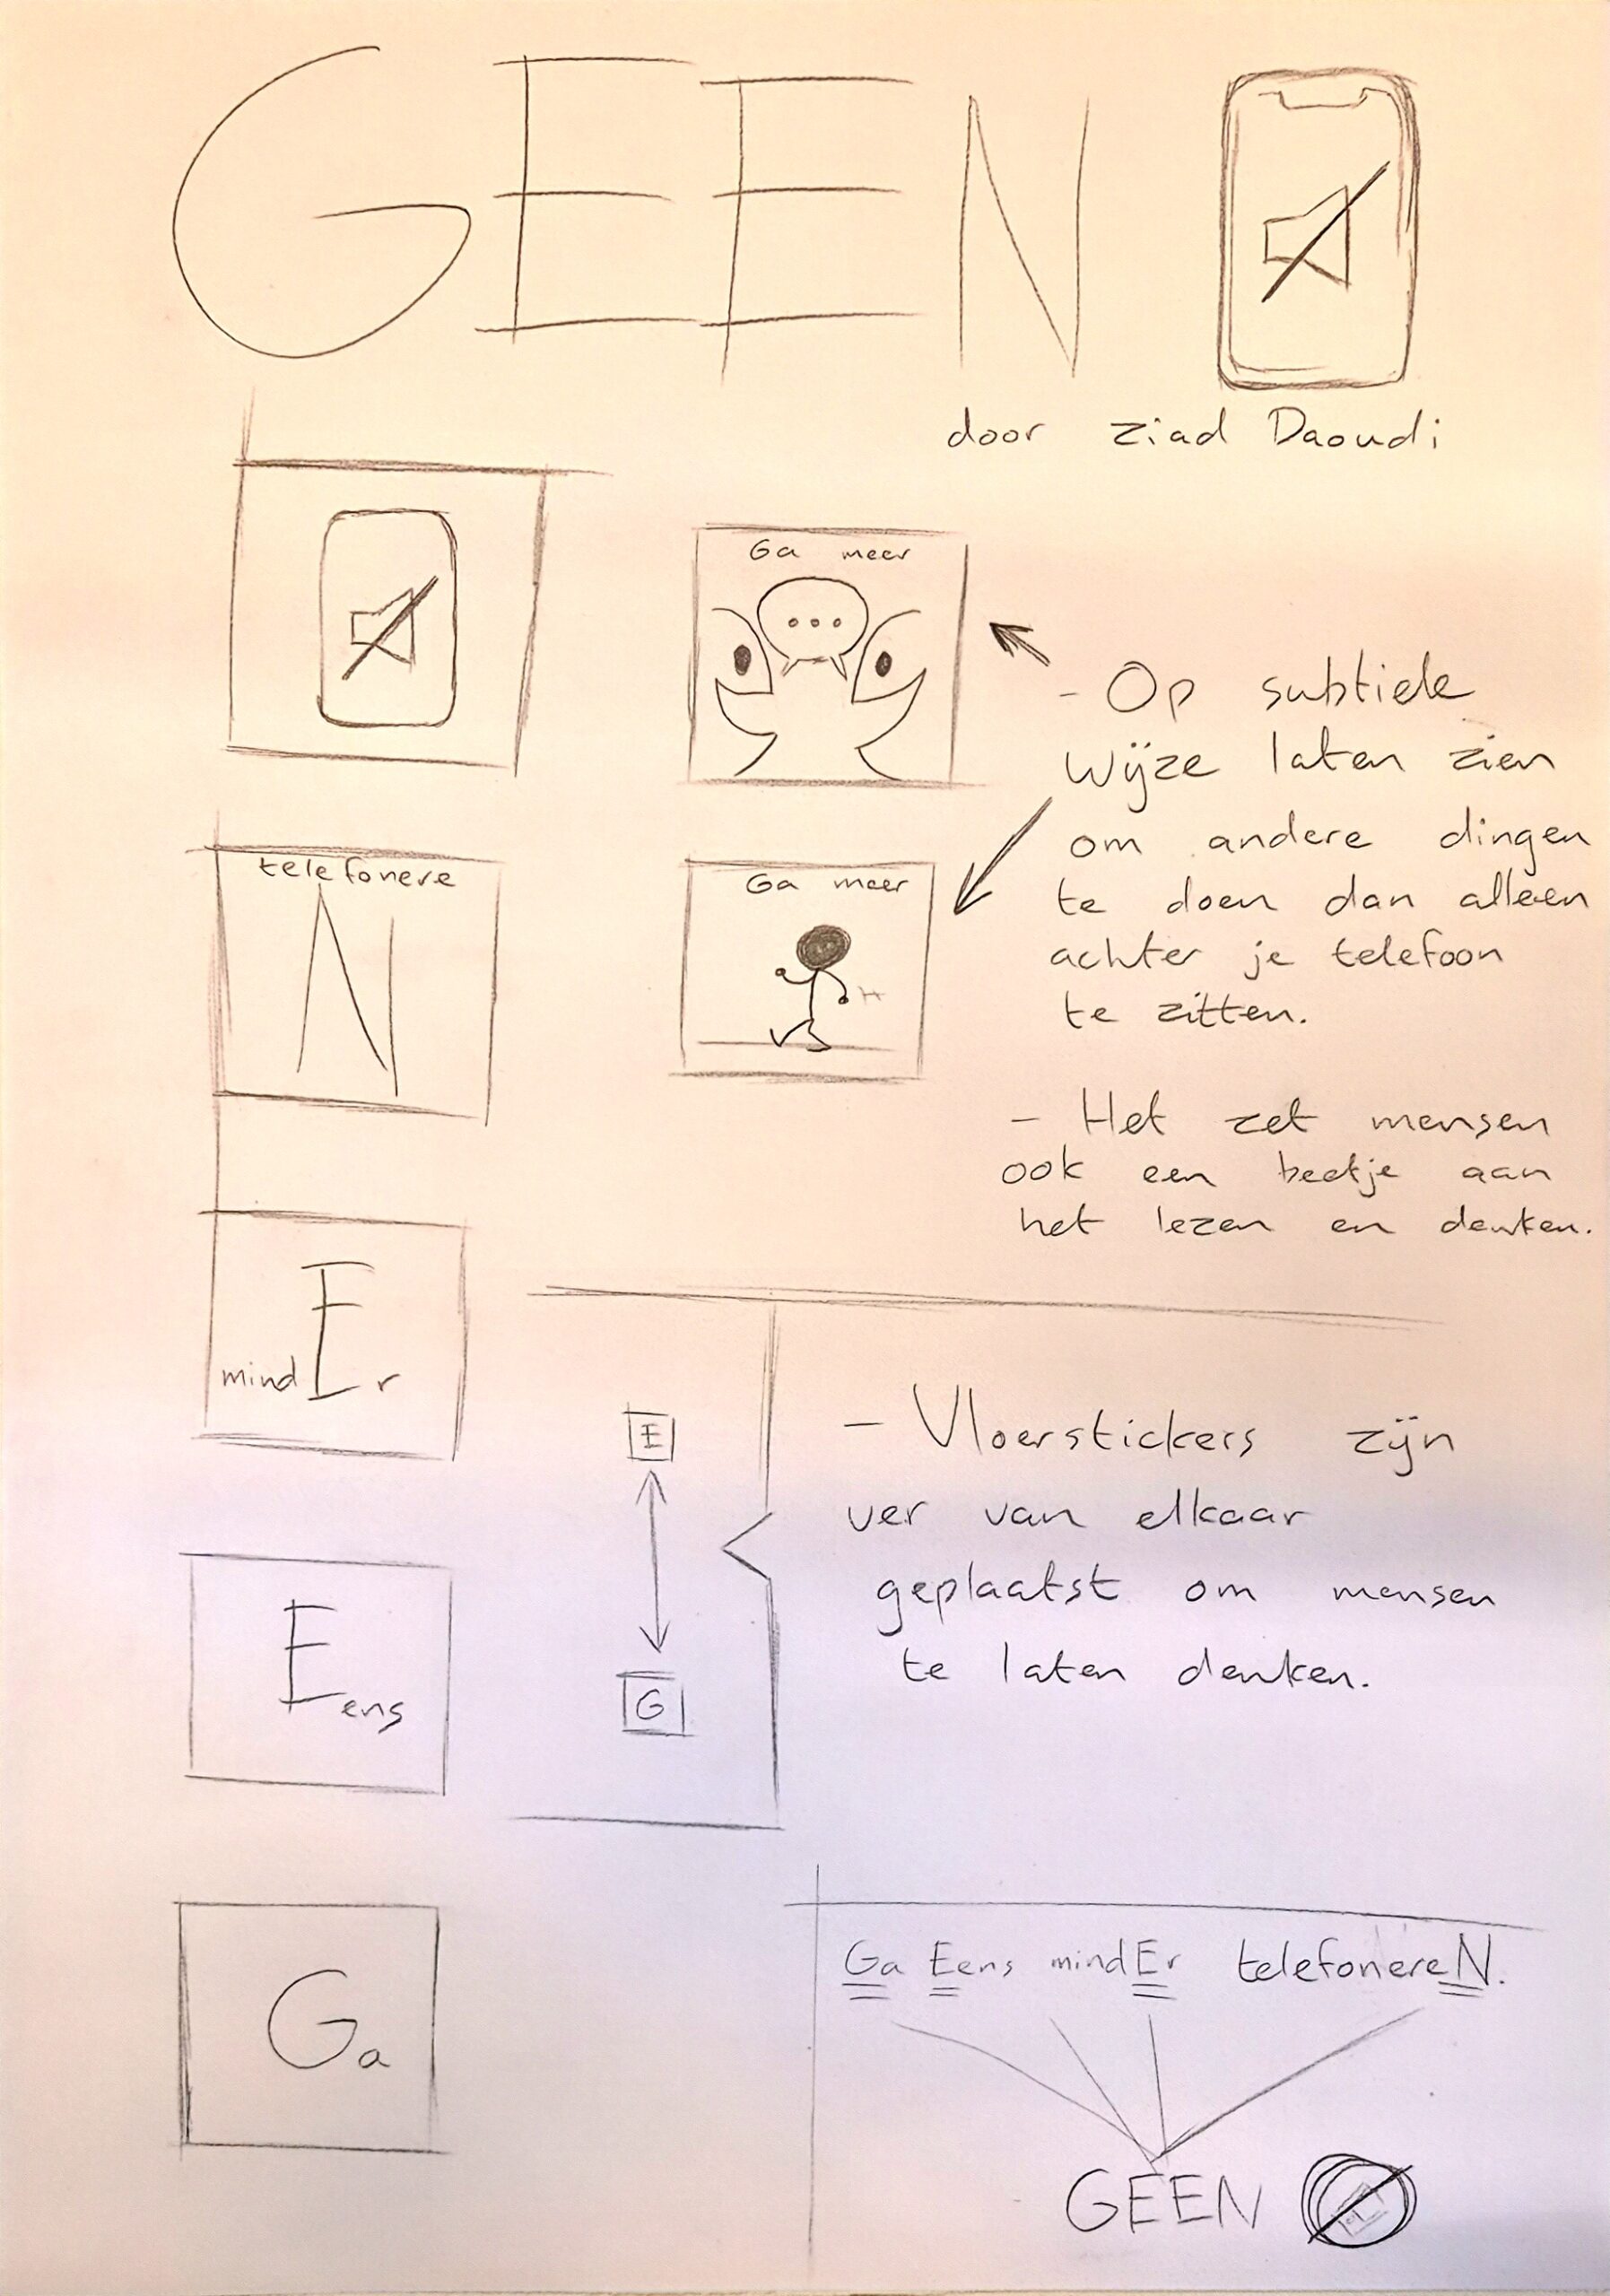 GEEN
door ziad Daoudi
Ga meer
- Op subtiele
wijze laten zien
om andere dingen
te doen dan alleen
achter je telefoon
te zitten.
telefonere
N
Ga meer
- Het zet mensen
ook een beetje aan
het lezen en denken.
mindEr
E
G
- Vloerstickers zijn
ver van elkaar
geplaatst om mensen
te laten denken.
Eens
Ga
Ga Eens mindEr telefonereN.
GEEN